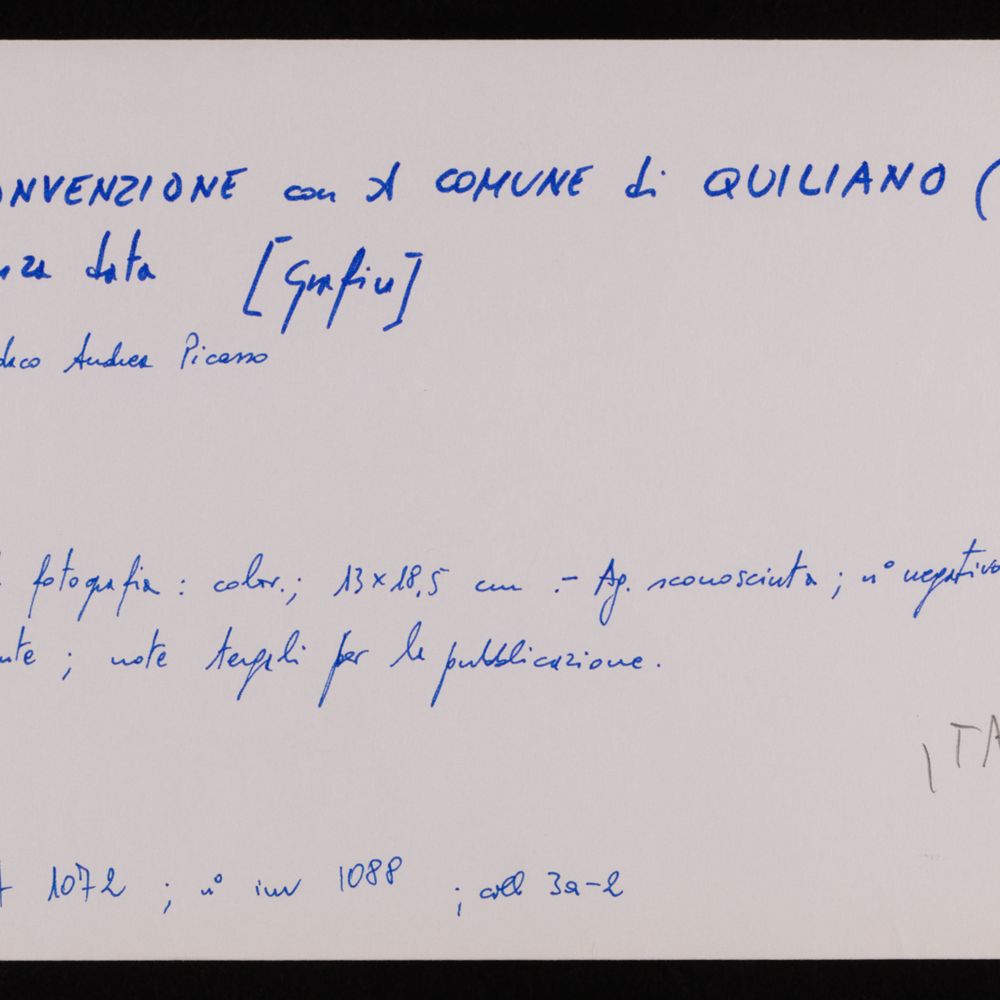 ONVENZIONE con il COMUNE di QUILIANO (
nza data [Grafica]
daco Andrea Picasso
fotografia : color.; 13x18,5 cm .- Ag. sconosciuta ; n° negativo
nte ; note tergali per la pubblicazione.
ITA
1072 ; n° inv 1088 ; coll 3a-2